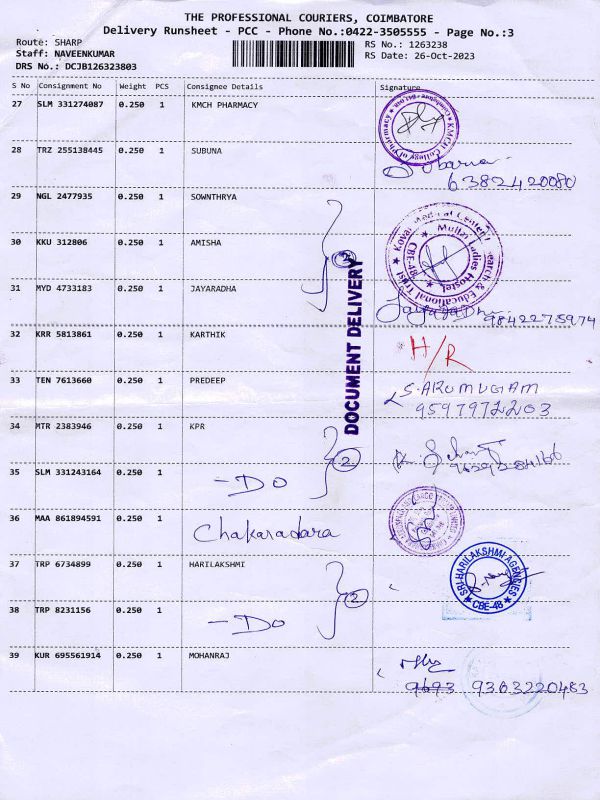 THE PROFESSIONAL COURIERS, COIMBATORE
Delivery Runsheet - PCC - Phone No.:0422-3505555 - Page No.:3
Route: SHARP
Staff: NAVEENKUMAR
DRS No.: DCJB126323803
RS No.: 1263238
RS Date: 26-Oct-2023
S No Consignment No Weight PCS Consignee Details Signature
27 SLM 331274087 0.250 1 KMCH PHARMACY
KMCH College of Pharmacy
28 TRZ 255138445 0.250 1 SUBUNA
6382420080
29 NGL 2477935 0.250 1 SOWNTHRYA
30 KKU 312806 0.250 1 AMISHA
Kovai Medical Center Research & Educational Trust
Mullai Ladies Hostel
CBE-48
31 MYD 4733183 0.250 1 JAYARADHA
9842275974
DOCUMENT DELIVERY
32 KRR 5813861 0.250 1 KARTHIK H/R
33 TEN 7613660 0.250 1 PREDEEP S.ARUMUGAM
9597972203
34 MTR 2383946 0.250 1 KPR
35 SLM 331243164 0.250 1 -DO 2
36 MAA 861894591 0.250 1 Chakaradara
37 TRP 6734899 0.250 1 HARILAKSHMI
SRI HARILAKSHMI AGENCIES
CBE-48
38 TRP 8231156 0.250 1 -DO 2
39 KUR 695561914 0.250 1 MOHANRAJ
9363220483